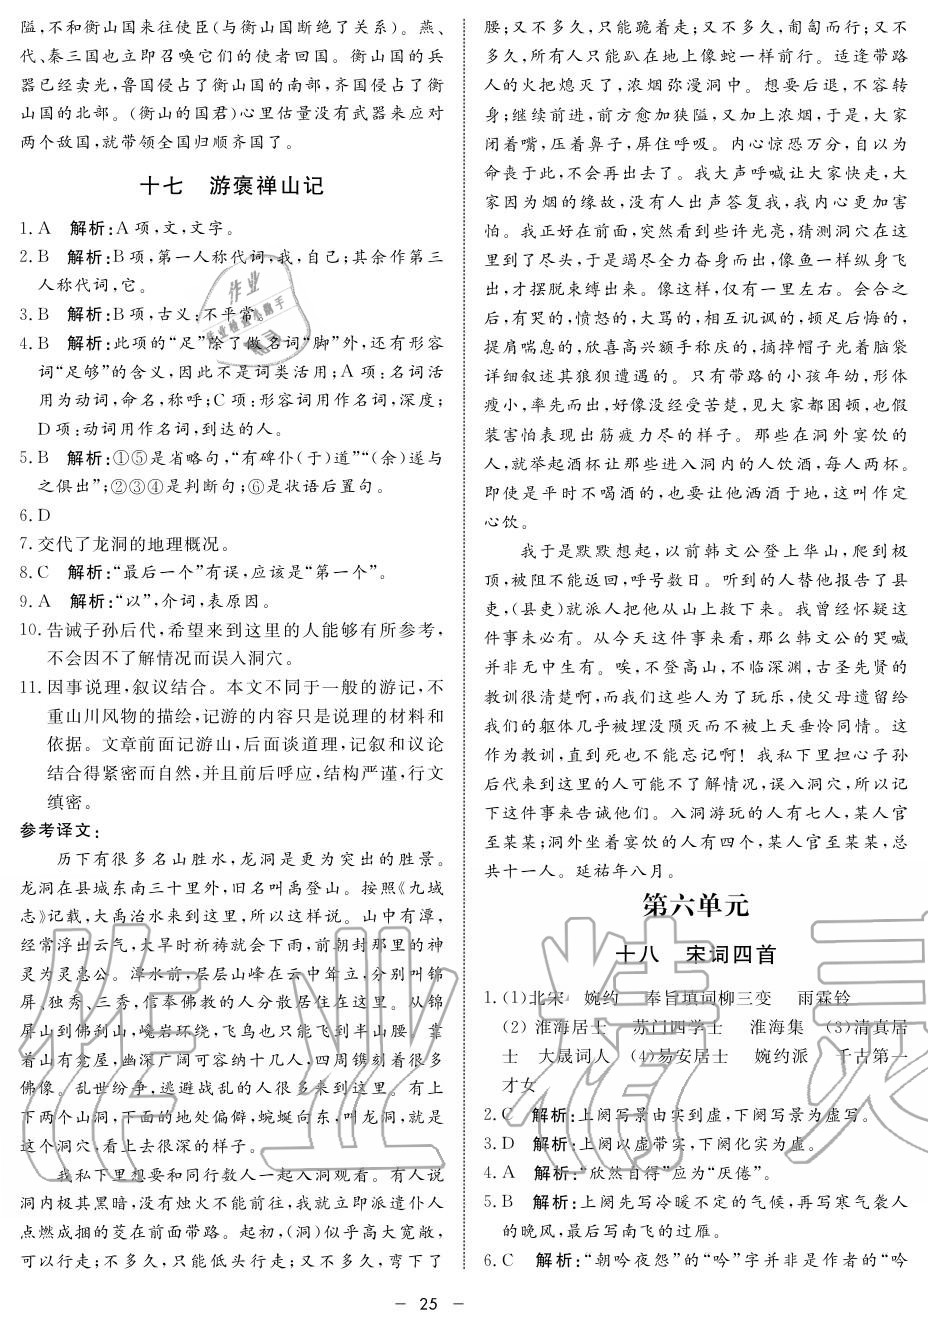 隘,不和衡山国来往使臣(与衡山国断绝了关系)。燕、
代、秦三国也立即召唤它们的使者回国。衡山国的兵
器已经卖光,鲁国侵占了衡山国的南部,齐国侵占了衡
山国的北部。(衡山的国君)心里估量没有武器来应对
两个敌国,就带领全国归顺齐国了。
十七　游褒禅山记
1. A　解析:A项,文,文字。
2. B　解析:B项,第一人称代词,我,自己;其余作第三
人称代词,它。
3. B　解析:B项,古义:不平常。
4. B　解析:此项的“足”除了做名词“脚”外,还有形容
词“足够”的含义,因此不是词类活用;A项:名词活
用为动词,命名,称呼;C项:形容词用作名词,深度;
D项:动词用作名词,到达的人。
5. B　解析:①⑤是省略句,“有碑仆(于)道”“(余)遂与
之俱出”;②③④是判断句;⑥是状语后置句。
6. D
7. 交代了龙洞的地理概况。
8. C　解析:“最后一个”有误,应该是“第一个”。
9. A　解析:“以”,介词,表原因。
10. 告诫子孙后代,希望来到这里的人能够有所参考,
不会因不了解情况而误入洞穴。
11. 因事说理,叙议结合。本文不同于一般的游记,不
重山川风物的描绘,记游的内容只是说理的材料和
依据。文章前面记游山,后面谈道理,记叙和议论
结合得紧密而自然,并且前后呼应,结构严谨,行文
缜密。
参考译文:
历下有很多名山胜水,龙洞是更为突出的胜景。
龙洞在县城东南三十里外,旧名叫禹登山。按照《九域
志》记载,大禹治水来到这里,所以这样说。山中有潭,
经常浮出云气,大旱时祈祷就会下雨,前朝封那里的神
灵为灵惠公。潭水前,层层山峰在云中耸立,分别叫锦
屏、独秀、三秀,信奉佛教的人分散居住在这里。从锦
屏山到佛刹山,巉岩环绕,飞鸟也只能飞到半山腰。靠
着山有龛屋,幽深广阔可容纳十几人,四周镌刻着很多
佛像。乱世纷争,逃避战乱的人很多来到这里。有上
下两个山洞,下面的地处偏僻,蜿蜒向东,叫龙洞,就是
这个洞穴,看上去很深的样子。
我私下里想要和同行数人一起入洞观看。有人说
洞内极其黑暗,没有烛火不能前往,我就立即派遣仆人
点燃成捆的茭在前面带路。起初,(洞)似乎高大宽敞,
可以行走;不多久,只能低头行走;又不多久,弯下了
腰;又不多久,只能跪着走;又不多久,匍匐而行;又不
多久,所有人只能趴在地上像蛇一样前行。适逢带路
人的火把熄灭了,浓烟弥漫洞中。想要后退,不容转
身;继续前进,前方愈加狭隘,又加上浓烟,于是,大家
闭着嘴,压着鼻子,屏住呼吸。内心惊恐万分,自以为
命丧于此,不会再出去了。我大声呼喊让大家快走,大
家因为烟的缘故,没有人出声答复我,我内心更加害
怕。我正好在前面,突然看到些许光亮,猜测洞穴在这
里到了尽头,于是竭尽全力奋身而出,像鱼一样纵身飞
出,才摆脱束缚出来。像这样,仅有一里左右。会合之
后,有哭的,愤怒的,大骂的,相互讥讽的,顿足后悔的,
提肩喘息的,欣喜高兴额手称庆的,摘掉帽子光着脑袋
详细叙述其狼狈遭遇的。只有带路的小孩年幼,形体
瘦小,率先而出,好像没经受苦楚,见大家都困顿,也假
装害怕表现出筋疲力尽的样子。那些在洞外宴饮的
人,就举起酒杯让那些进入洞内的人饮酒,每人两杯。
即使是平时不喝酒的,也要让他洒酒于地,这叫作定
心饮。
我于是默默想起,以前韩文公登上华山,爬到极
顶,被阻不能返回,呼号数日。听到的人替他报告了县
吏,(县吏)就派人把他从山上救下来。我曾经怀疑这
件事未必有。从今天这件事来看,那么韩文公的哭喊
并非无中生有。唉,不登高山,不临深渊,古圣先贤的
教训很清楚啊,而我们这些人为了玩乐,使父母遗留给
我们的躯体几乎被埋没陨灭而不被上天垂怜同情。这
作为教训,直到死也不能忘记啊!我私下里担心子孙
后代来到这里的人可能不了解情况,误入洞穴,所以记
下这件事来告诫他们。入洞游玩的人有七人,某人官
至某某;洞外坐着宴饮的人有四个,某人官至某某,总
共十一人。延祐年八月。
第六单元
十八　宋词四首
1. (1)北宋　婉约　奉旨填词柳三变　雨霖铃
(2)淮海居士　苏门四学士　淮海集　(3)清真居
士　大晟词人　(4)易安居士　婉约派　千古第一
才女
2. C　解析:上阕写景由实到虚,下阕写景为虚写。
3. D　解析:上阕以虚带实,下阕化实为虚。
4. A　解析:“欣然自得”应为“厌倦”。
5. B　解析:上阕先写冷暖不定的气候,再写寒气袭人
的晚风,最后写南飞的过雁。
6. C　解析:“朝吟夜怨”的“吟”字并非是作者的“吟
— 25 —
作业精灵